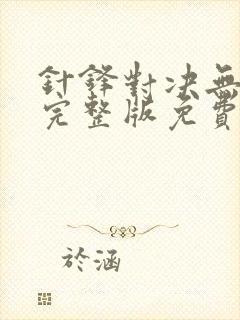 針鋒對決無
完整版免費
於涵